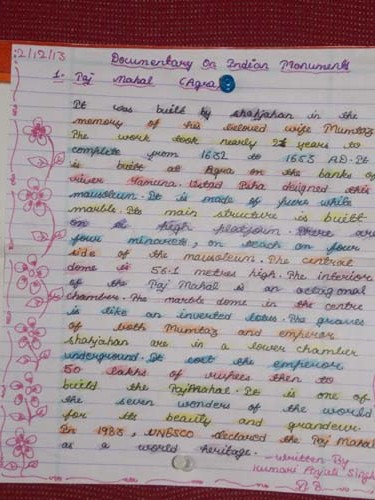 2/12/13
Documentary On Indian Monuments
1. Taj Mahal (Agra)
It was built by shahjahan in the
memory of his beloved wife Mumtaz
The work took nearly 21 years to
complete from 1632 to 1653 AD. It
is built at Agra on the banks of
river Yamuna. Ustad Isha deigned this
mausoleum. It is made of pure white
marble. Its main structure is built
on a high platform. There are
four minarets, on each on four
side of the mausoleum. The central
dome is 56.1 metres high. The interior
of the Taj Mahal is an octagonal
chamber. The marble dome in the centre
is like an inverted lotus. The graves
of both Mumtaz and emperor
shahjahan are in a lower chamber
underground. It cost the emperor
50 lakhs of rupees then to
build the TajMahal. It is one of
the seven wonders of the world
for its beauty and grandeur.
In 1983, UNESCO declared the Taj Mahal
as a world heritage.
- written By
Kumari Anjali Singh